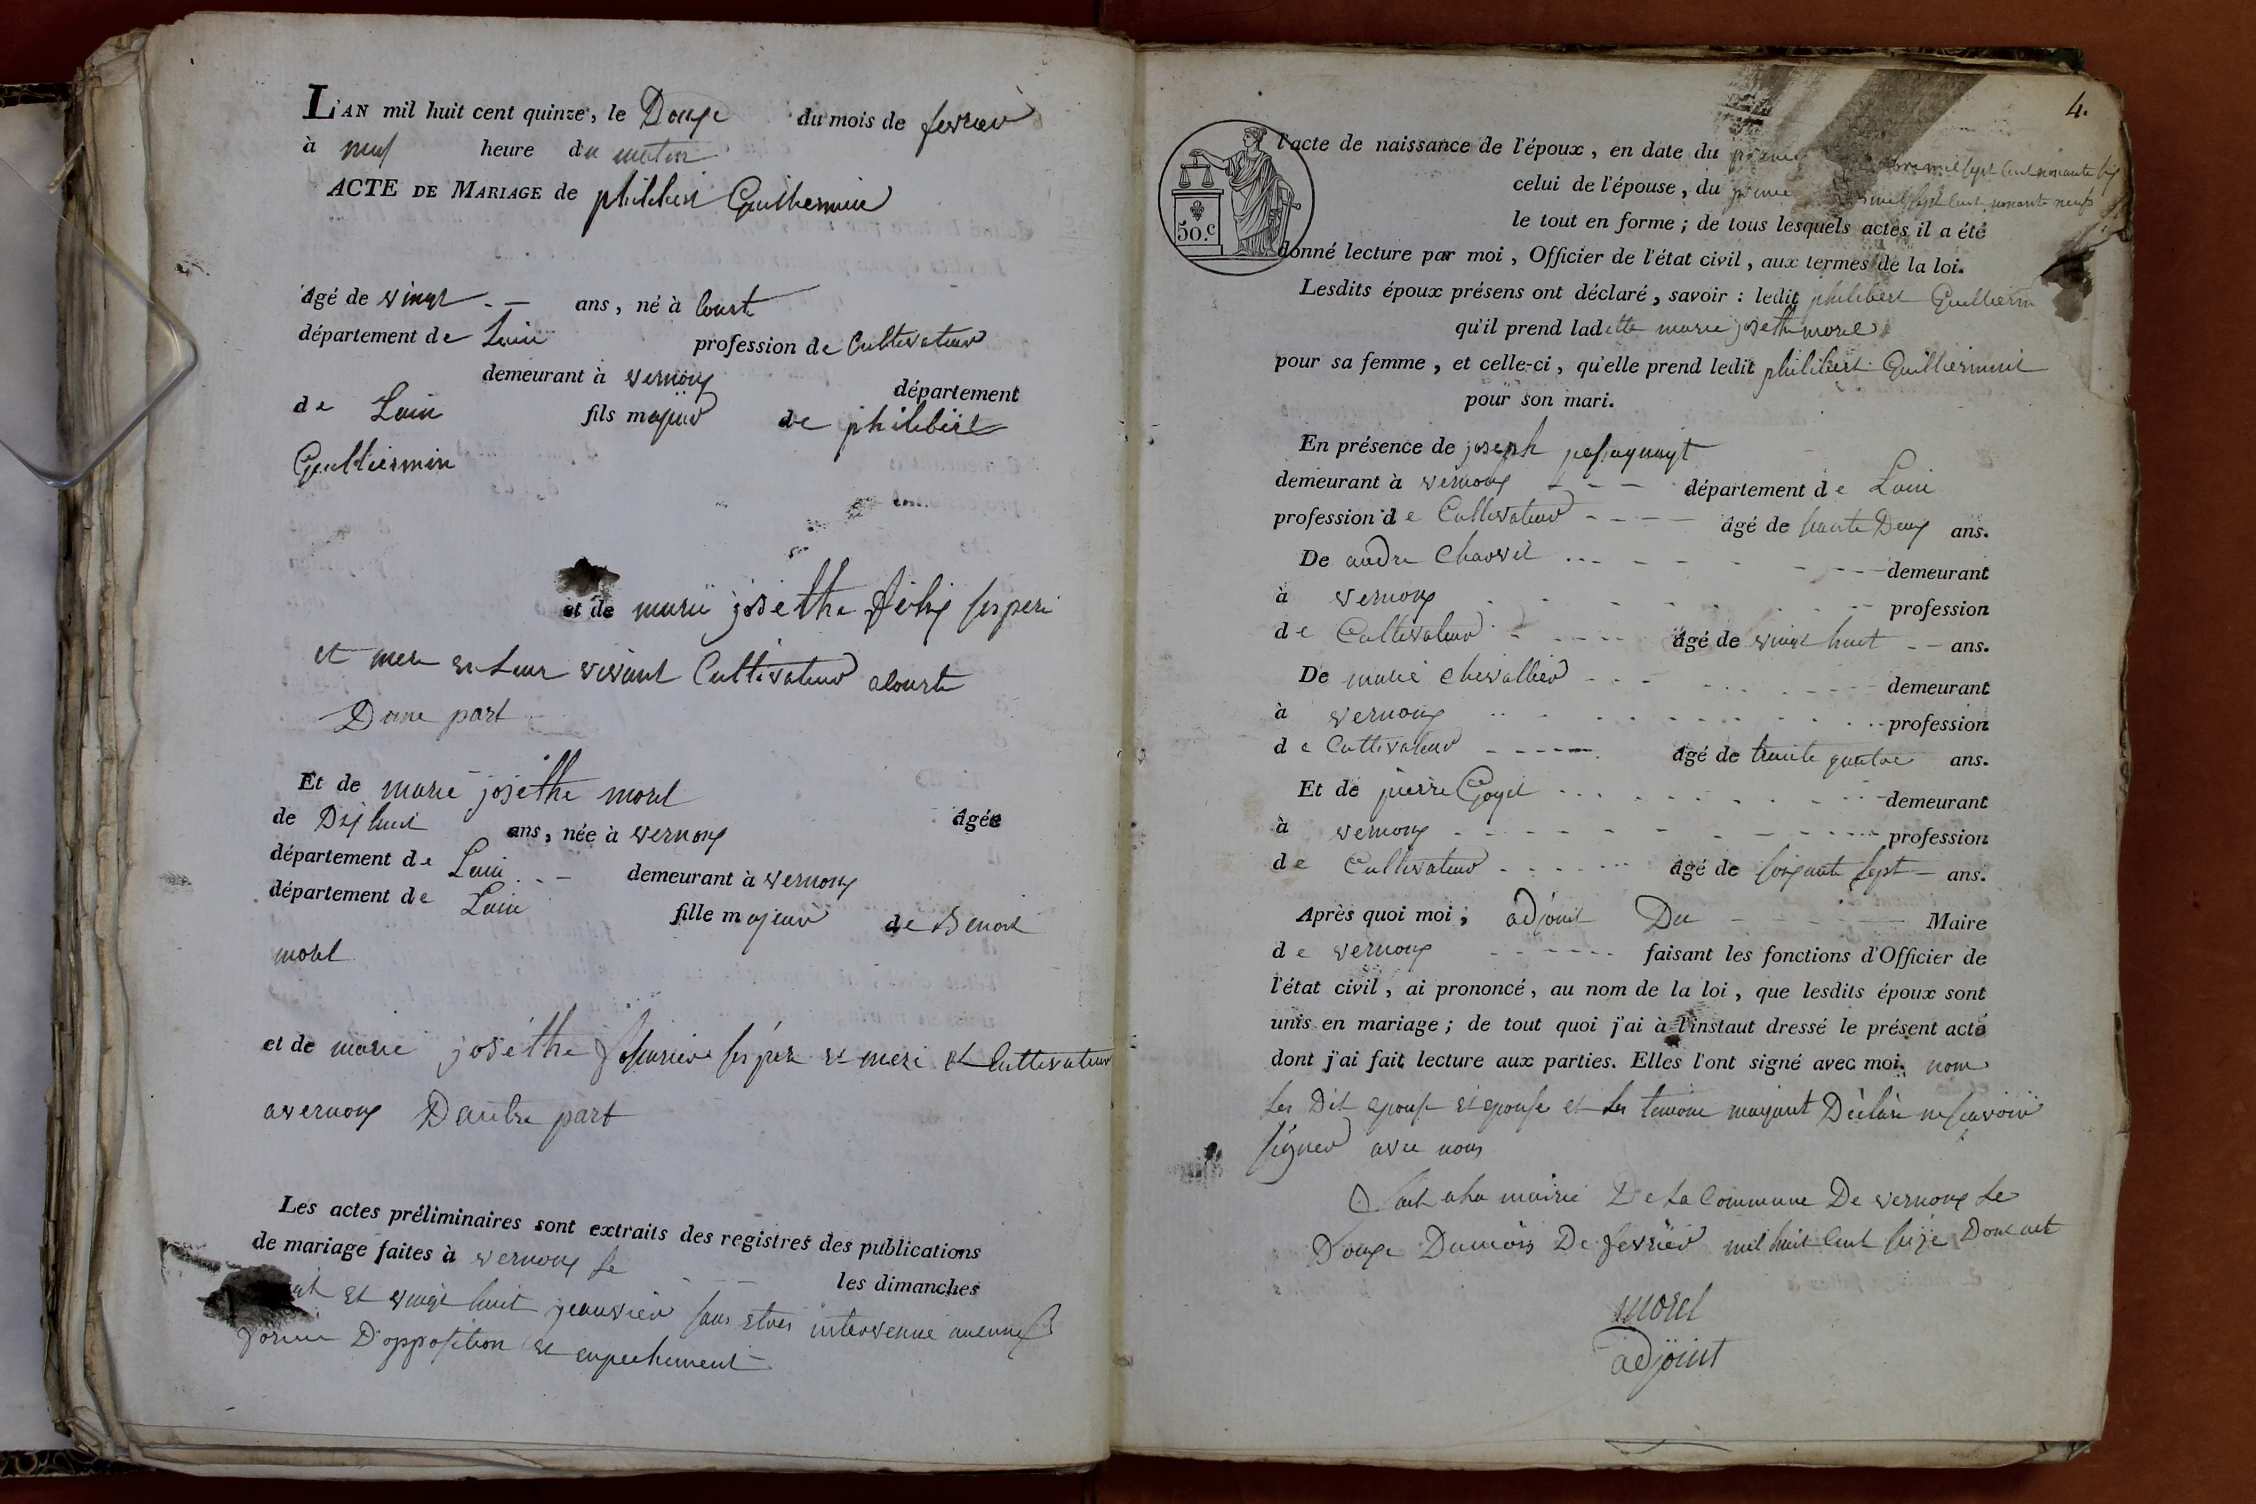 L'AN mil huit cent quinze, le Douze du mois de fevrier
à neuf heure du matin
ACTE DE MARIAGE de philibert Guilhermin
âgé de vingt ans, né à Court
département de Lain profession de Cultivateur
demeurant à vernoux département
de Lain fils majeur de philibert
Guilliermin
et de marie josethe ses pere
et mere vivant Cultivateur acourte
Dune part
Et de marie josethe morel âgée
de Dix huit ans, née à vernoux
département de Lain demeurant à vernoux
département de Lain fille majeur de Benoit
morel
et de marie josethe ses pere et mere et Cultivateur
avernoux Dautre part
Les actes préliminaires sont extraits des registres des publications
de mariage faites à vernoux le les dimanches
et vingt huit jeanvier sans etres intervenue aucunes
forme D'opposition et empechement
4.
50.c
l'acte de naissance de l'époux, en date du mil sept cent nonante six
celui de l'épouse, du mil sept cent nonante neuf
le tout en forme; de tous lesquels actes il a été
donné lecture par moi, Officier de l'état civil, aux termes de la loi.
Lesdits époux présens ont déclaré, savoir: ledit philibert Guilliermin
qu'il prend ladette marie josethe morel
pour sa femme, et celle-ci, qu'elle prend ledit philibert Guilliermint
pour son mari.
En présence de joseph
demeurant à vernoux département de Lain
profession de Cultivateur âgé de trante Deux ans.
De andre demeurant
à vernoux profession
de Cultivateur âgé de vingt huit ans.
De marie chevallier demeurant
à vernoux profession
de Cultivateur âgé de trante quatre ans.
Et de pierre Goyet demeurant
à vernoux profession
de Cultivateur âgé de soixante sept ans.
Après quoi moi, adjoint Du Maire
de vernoux faisant les fonctions d'Officier de
l'état civil, ai prononcé, au nom de la loi, que lesdits époux sont
unis en mariage; de tout quoi j'ai à l'instaut dressé le présent acte
dont j'ai fait lecture aux parties. Elles l'ont signé avec moi. nom
Les Dit epoux et epouse et les temoins mayant Déclare ne scavoir
signer avec nous
fait a la mairie De La Commune De vernoux Le
Douze Dumois De fevrier mil huit Cent seize Dont act
morel
adjoint